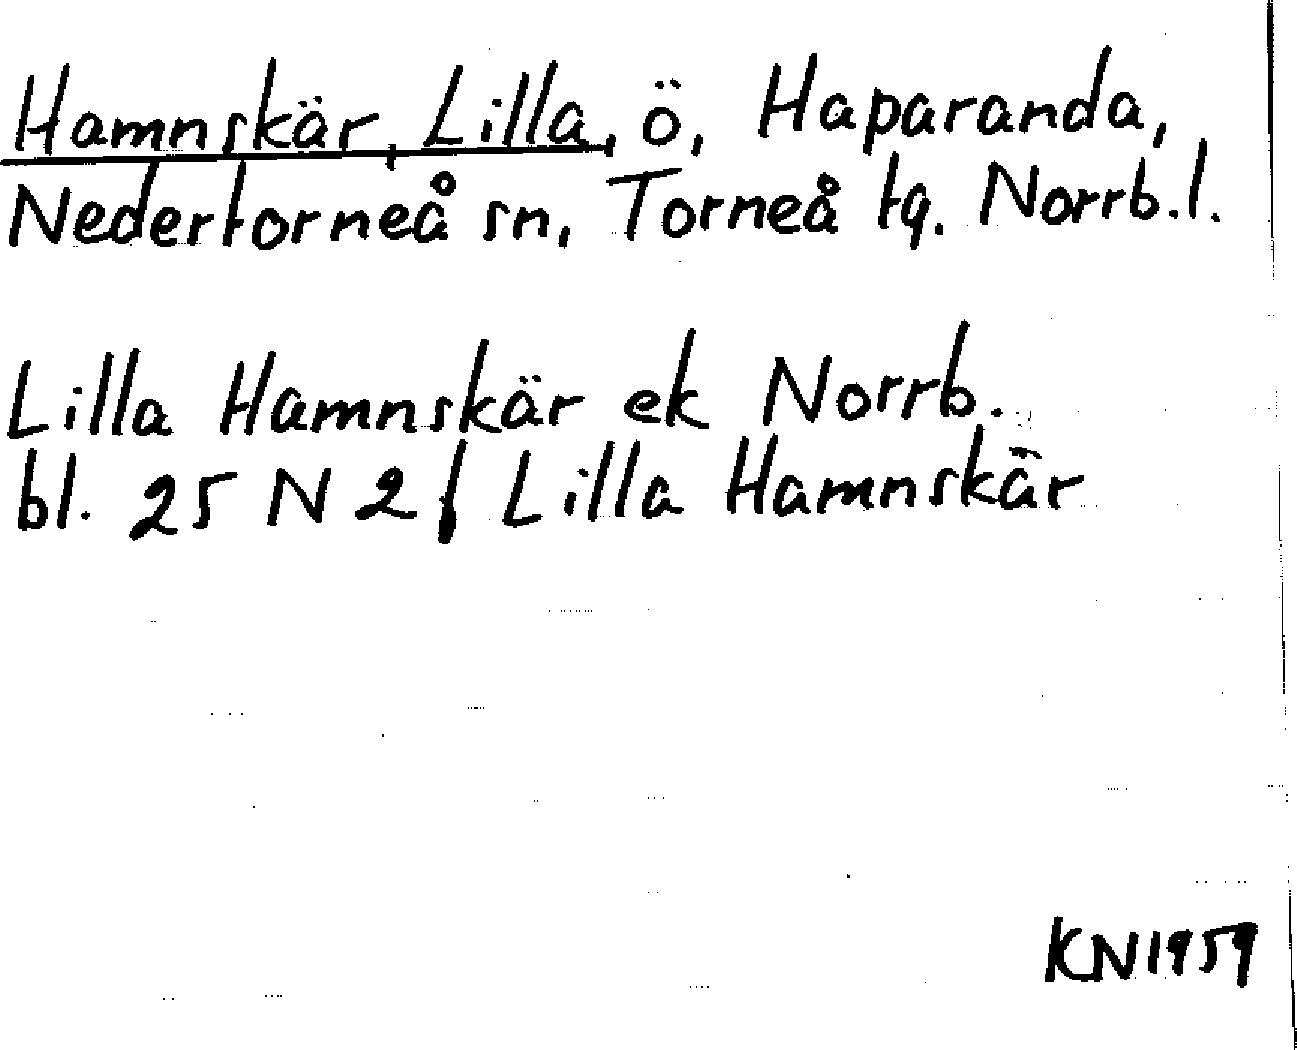 Hamnskär, Lilla, ö, Haparanda,
Nedertorneå sn, Torneå tg. Norrb.l.
Lilla Hamnskär ek Norrb.
bl. 25 N 2f Lilla Hamnskär
KN1959